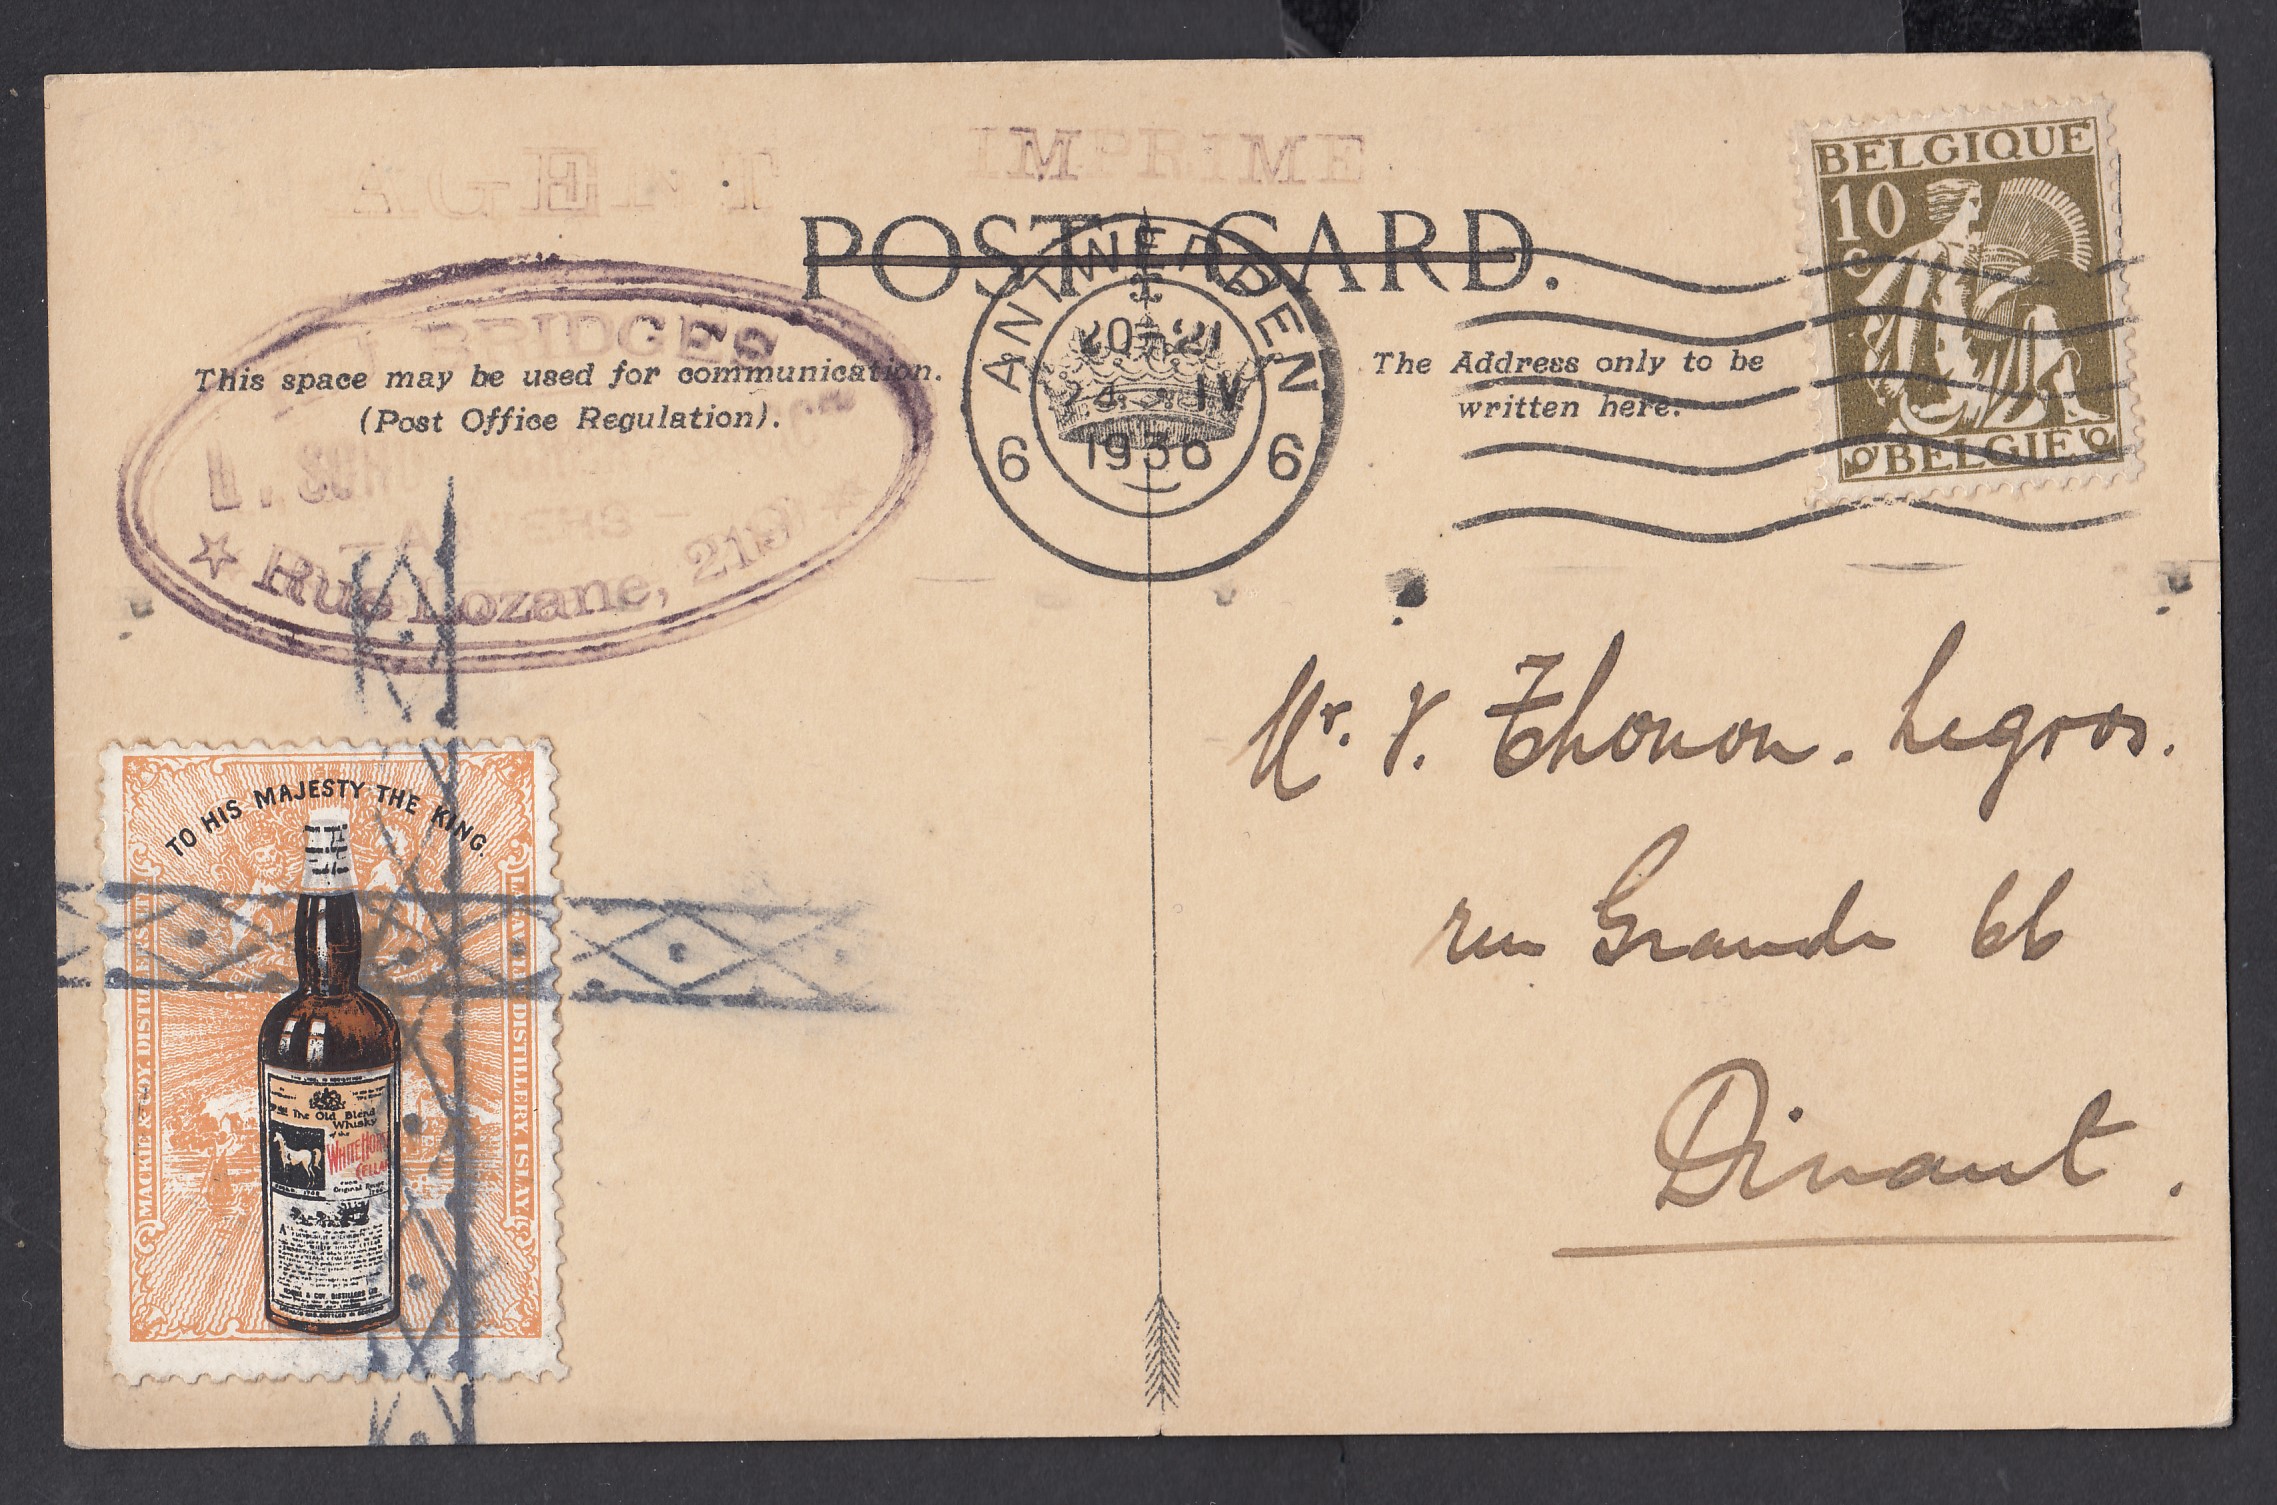 AGENT
IMPRIME
POST CARD.
BELGIQUE
10
C
BELGIË
ANTWERPEN
20-21
24 IV
1936
6 6
BRIDGES
This space may be used for communication.
(Post Office Regulation).
ANVERS
Rue Lozane, 219
The Address only to be
written here.
Mr. V. Thonon. Legros.
rue Grande 66
Dinant.
TO HIS MAJESTY THE KING.
MACKIE & COY. DISTILLERS LTD
LAGAVULIN DISTILLERY, ISLAY
The Old Blend
Whisky
of the
WHITE HORSE
CELLAR
FROM
Original Recipe